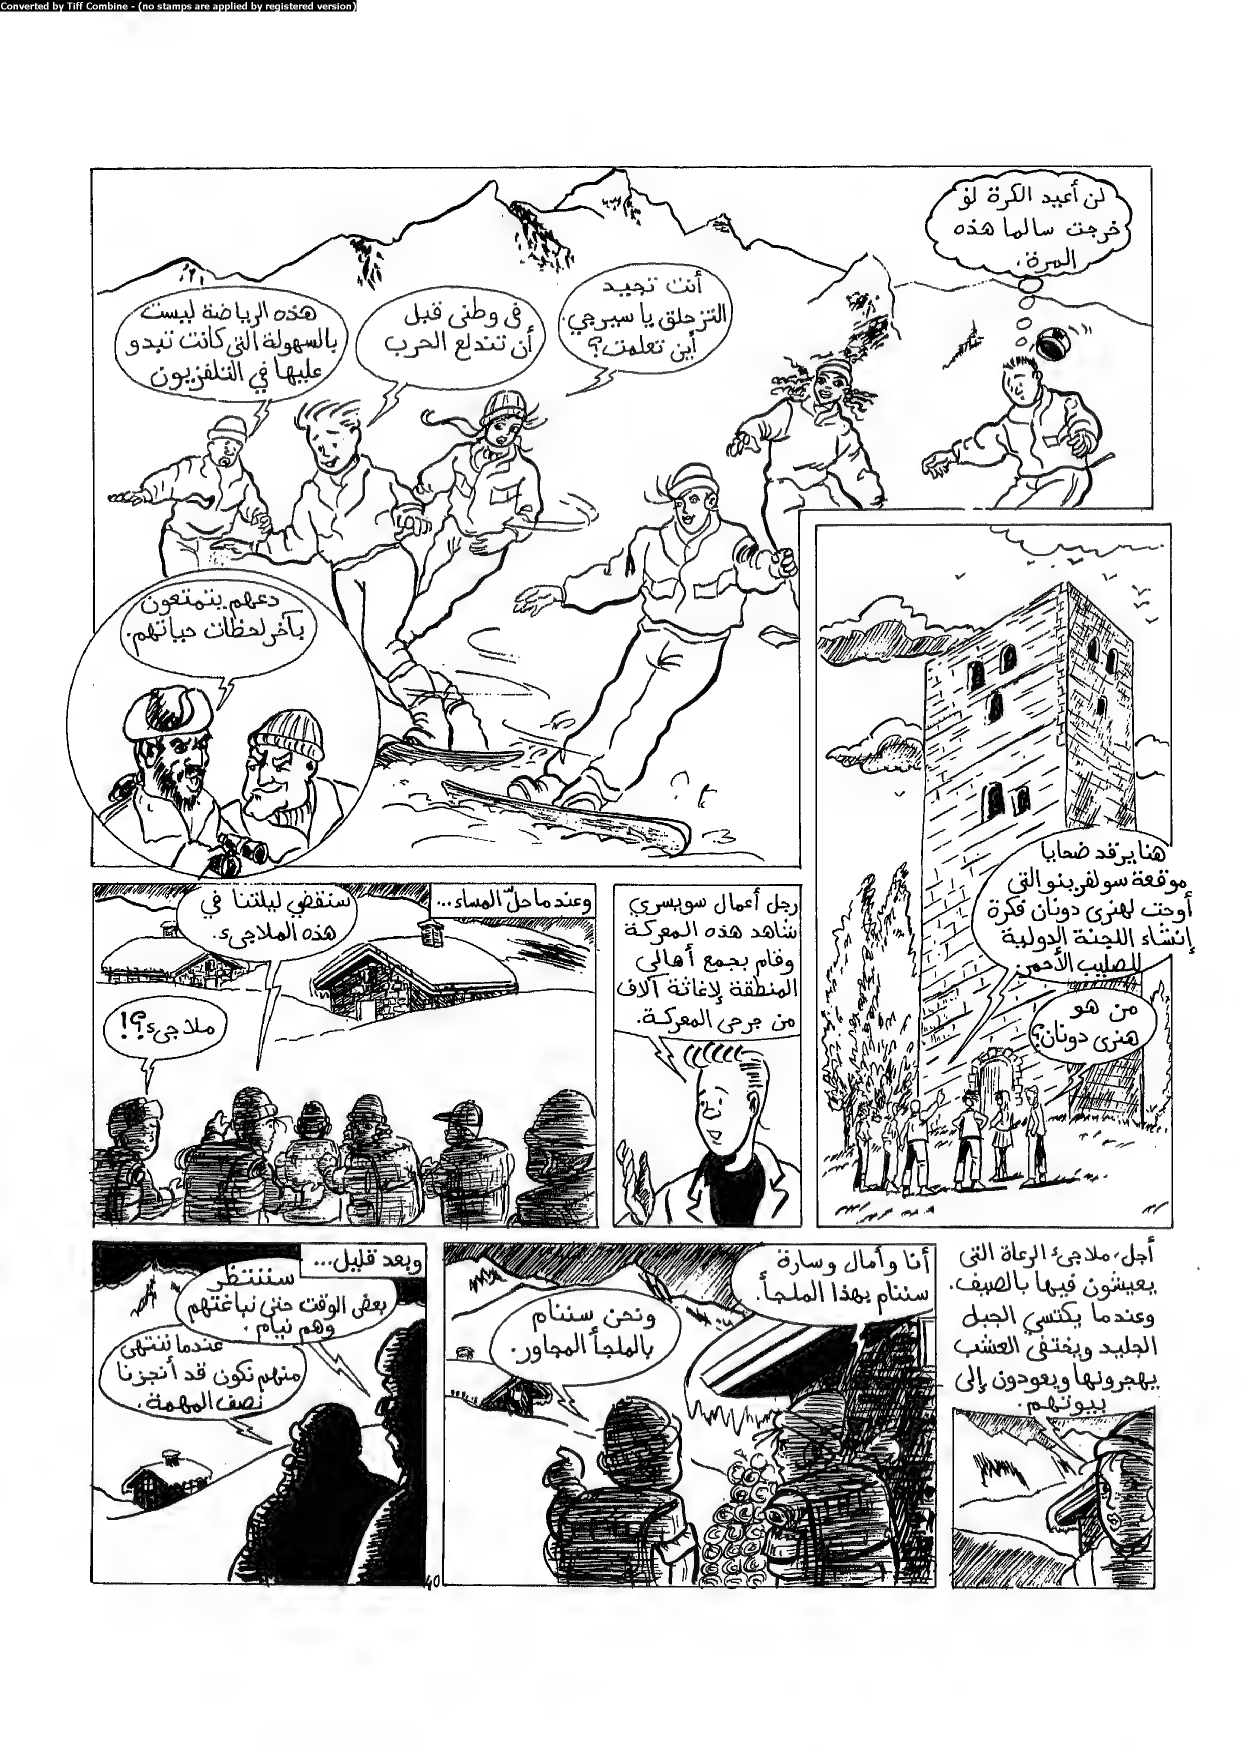 Converted by Tiff Combine - (no stamps are applied by registered version)
لن أعيد الكرة لو
خرجت سالما هذه
المرة.
أنت تجيد
التزحلق يا سيرجي.
أين تعلمت؟
في وطني قبل
أن تندلع الحرب
هذه الرياضة ليست
بالسهولة التي كانت تبدو
عليها في التلفزيون
دعهم يتمتعون
بآخر لحظات حياتهم.
هنا يرقد ضحايا
موقعة سولفرينو التي
أوحت لهنري دونان فكرة
إنشاء اللجنة الدولية
للصليب الأحمر.
من هو
هنري دونان؟
رجل أعمال سويسري
شاهد هذه المعركة
وقام بجمع أهالي
المنطقة لإغاثة آلاف
من جرحى المعركة.
وعندما حلّ المساء...
سنقضي ليلتنا في
هذه الملاجىء.
ملاجىء؟!
أجل، ملاجئ الرعاة التي
يعيشون فيها بالصيف.
وعندما يكتسي الجبل
الجليد ويختفي العشب
يهجرونها ويعودون إلى
بيوتهم.
أنا وأمال وسارة
سننام بهذا الملجأ.
ونحن سننام
بالملجأ المجاور.
وبعد قليل...
سننتظر
بعض الوقت حتى نباغتهم
وهم نيام.
عندما ننتهي
منهم نكون قد أنجزنا
نصف المهمة.
40